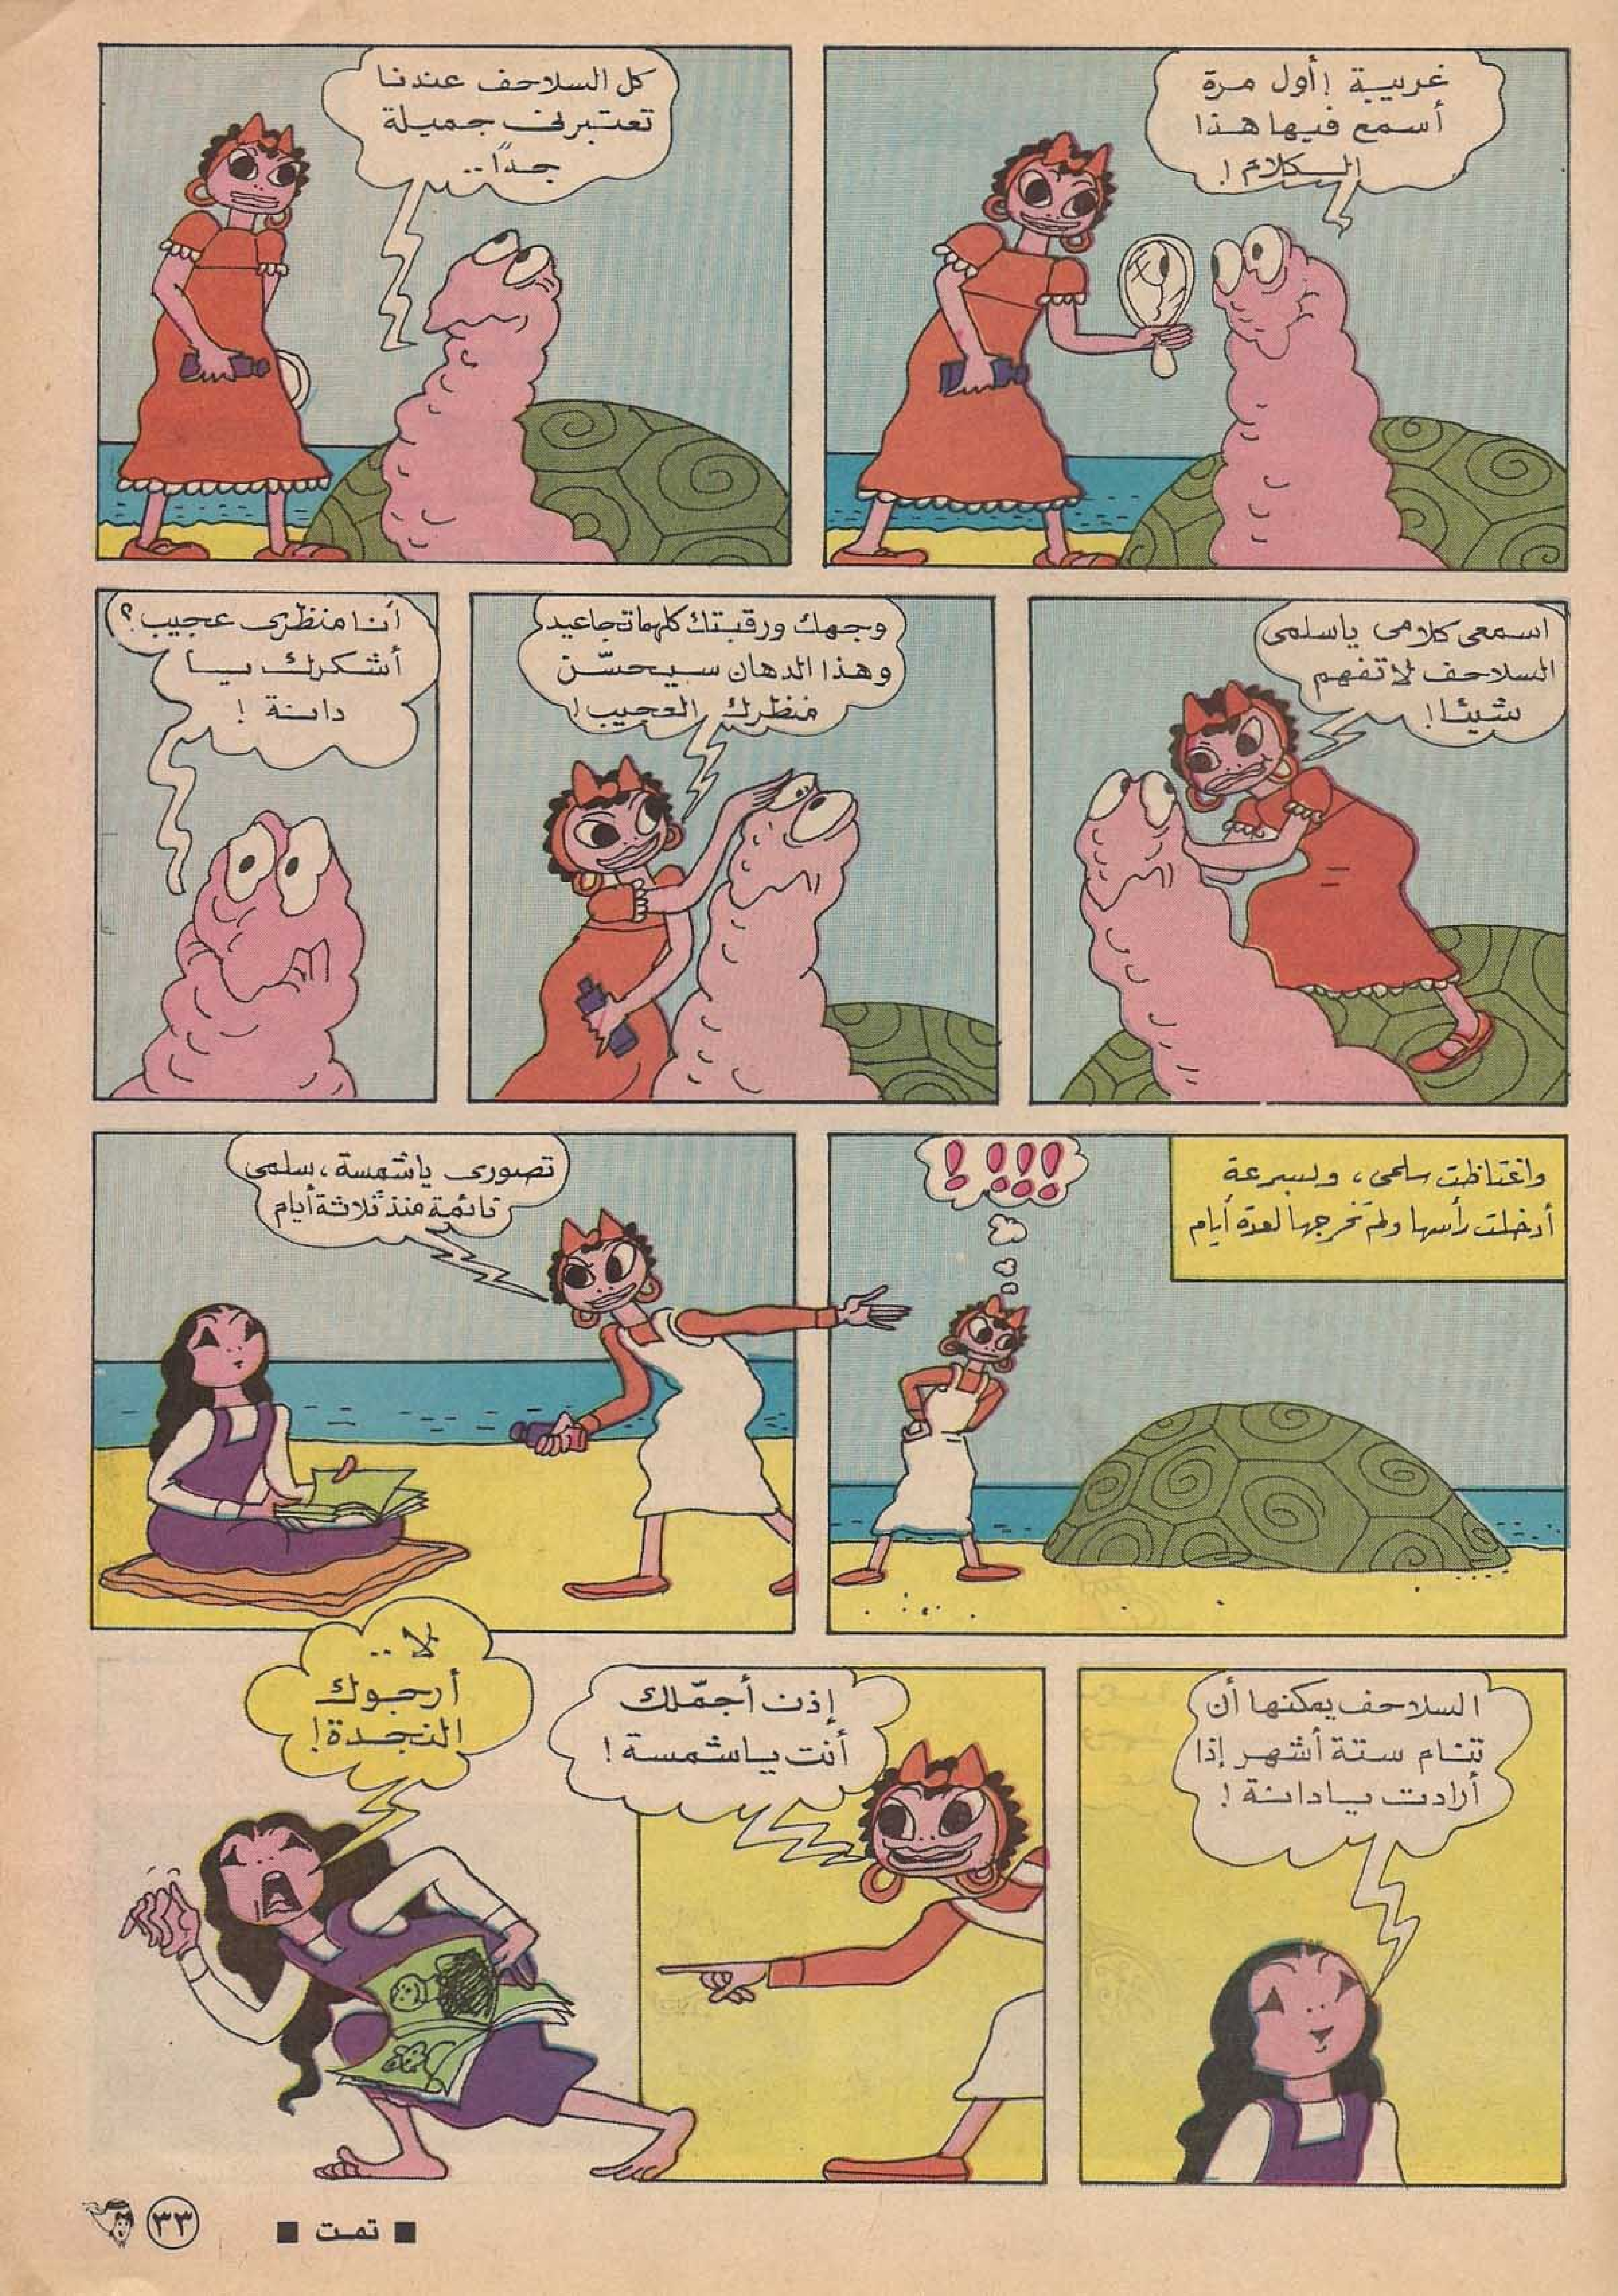 غريبة! أول مرة
أسمع فيها هذا
الكلام!
كل السلاحف عندنا
تعتبرنى جميلة
جداً..
اسمعى كلامى ياسلمى
السلاحف لا تفهم
شيئا!
وجهك ورقبتك كلهما تجاعيد
وهذا الدهان سيحسّن
منظرك العجيب!
أنا منظرى عجيب؟
أشكرك يا
دانة!
واغتاظت سلمى، وبسرعة
أدخلت رأسها ولم تخرجها لعدة أيام
! !!!
تصورى ياشمسة، سلمى
نائمة منذ ثلاثة أيام
السلاحف يمكنها أن
تنام ستة أشهر إذا
أرادت يادانة!
إذن أجمّلك
أنت ياشمسة!
لا..
أرجوك
النجدة!
■ تمت ■
٣٣